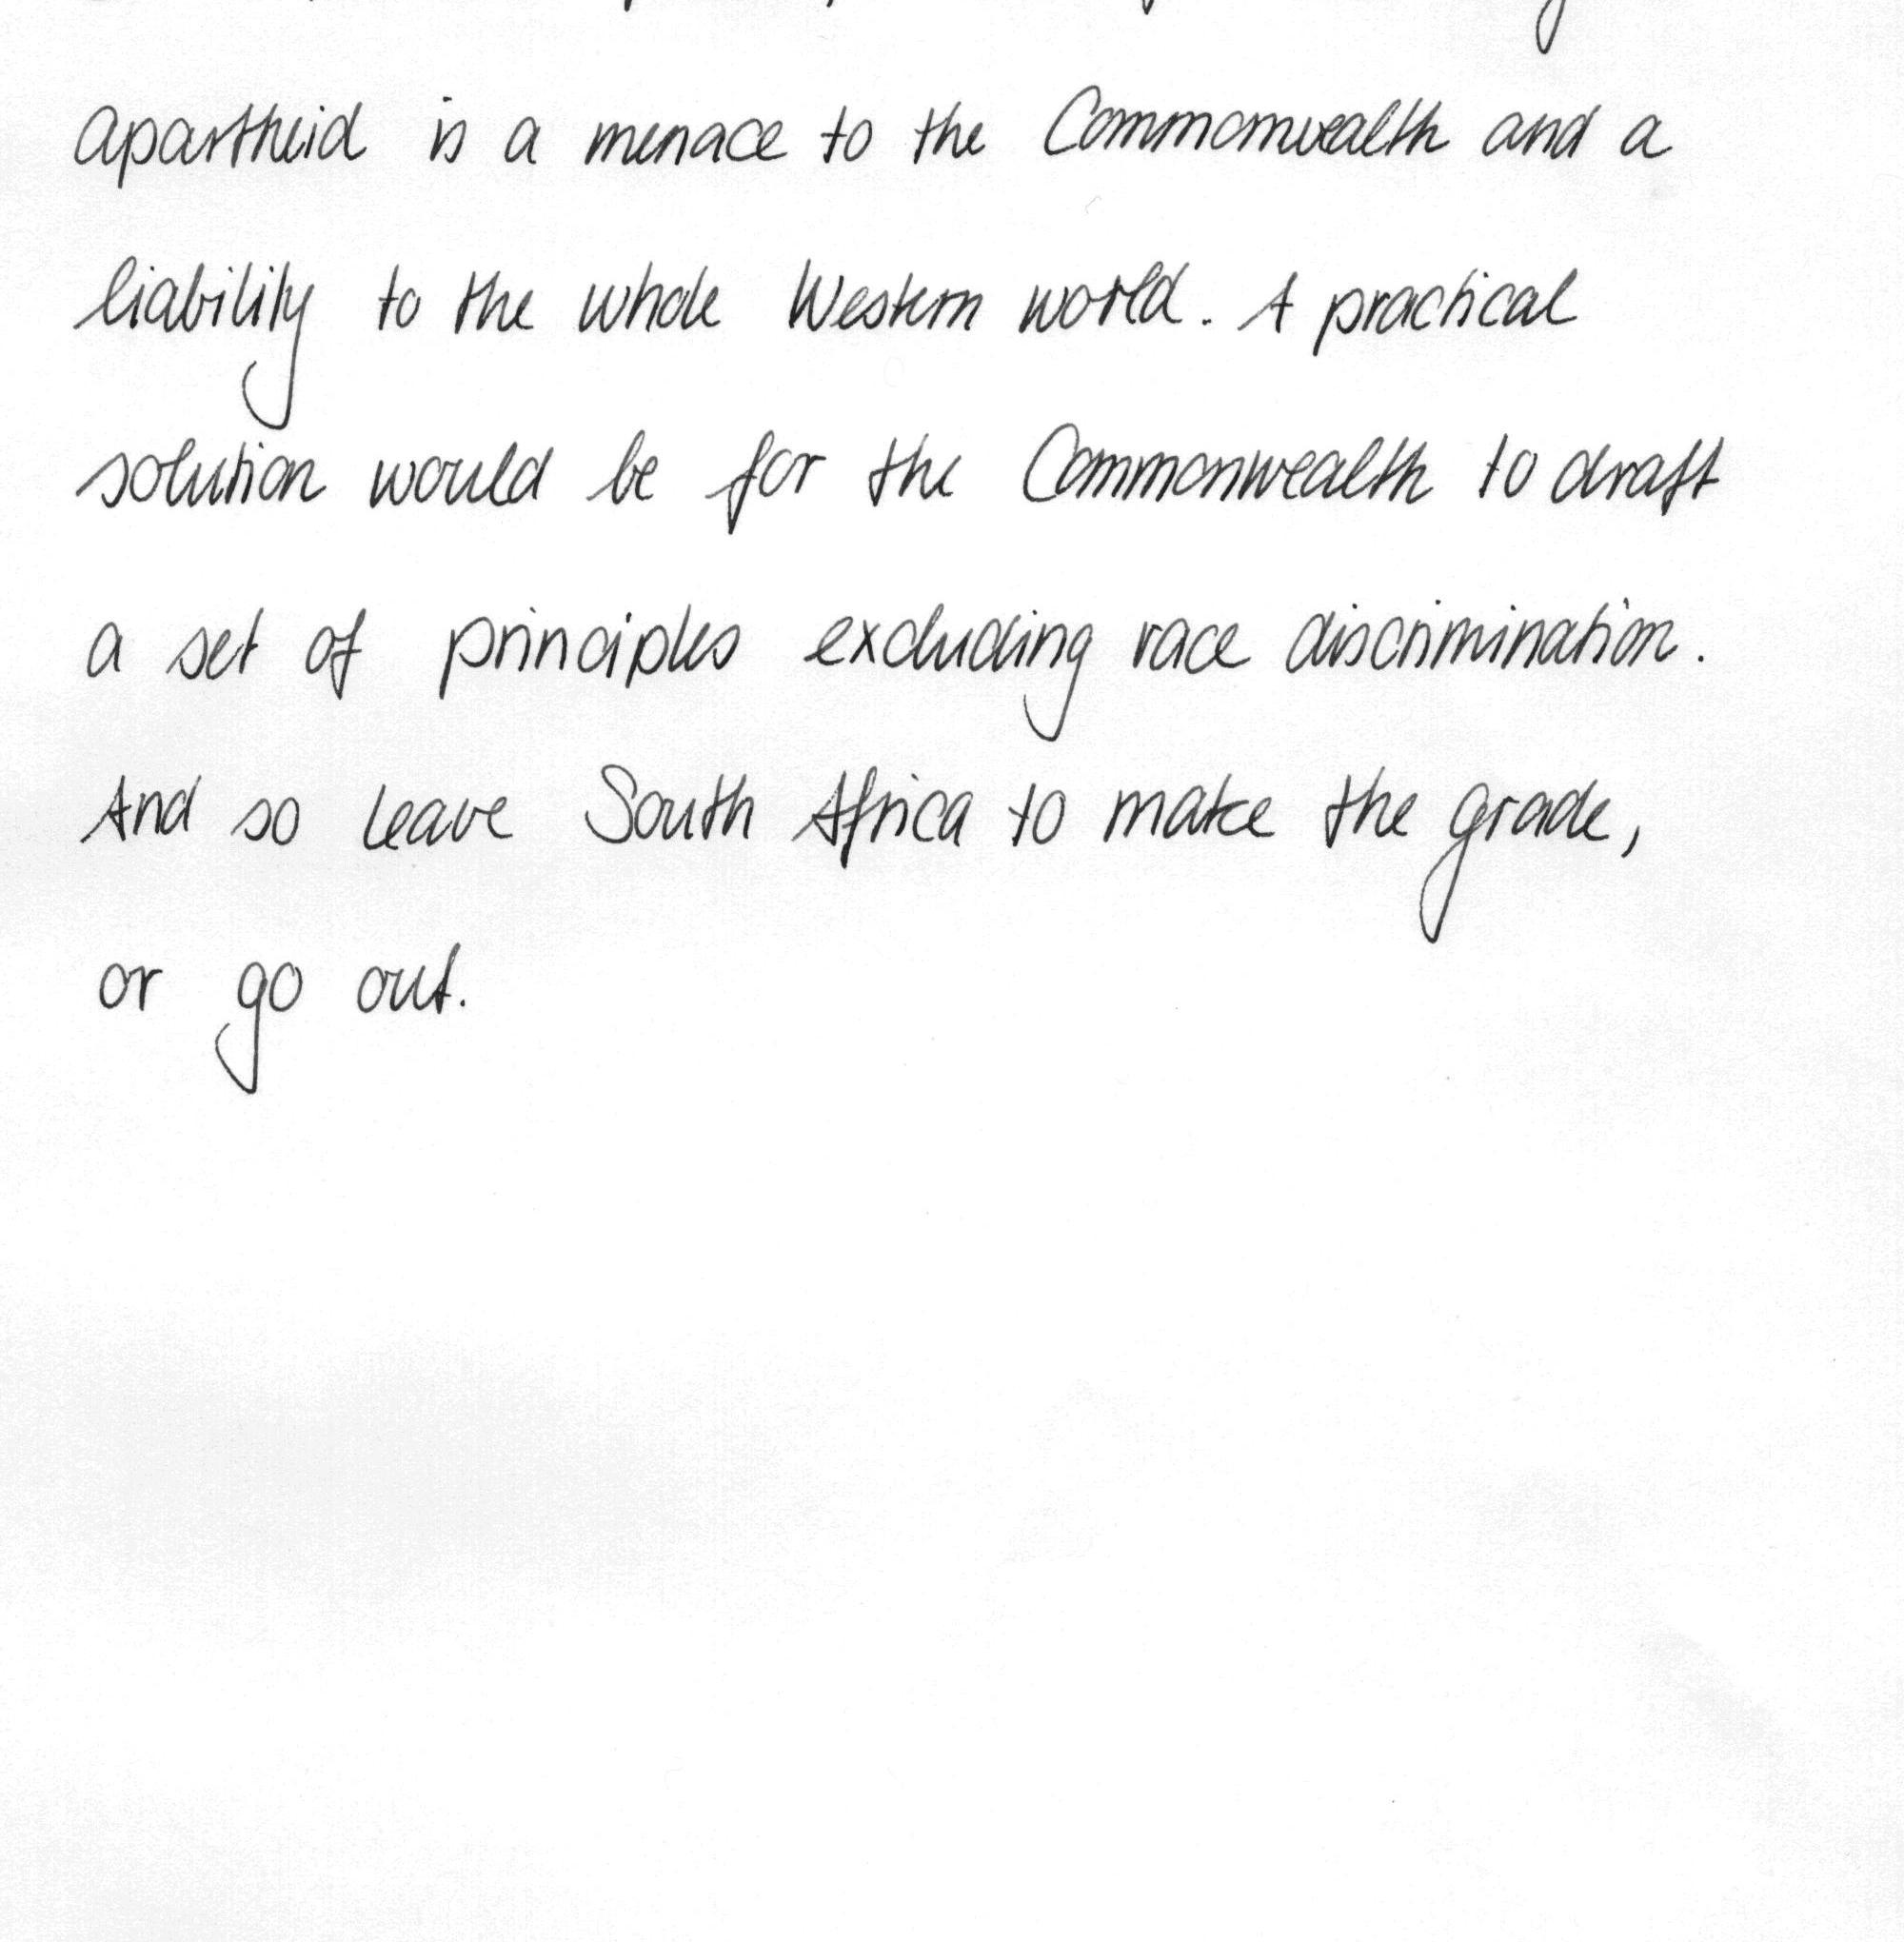 apartheid is a menace to the Commonwealth and a
liability to the whole Western world. A practical
solution would be for the Commonwealth to draft
a set of principles excluding race discrimination.
And so leave South Africa to make the grade,
or go out.